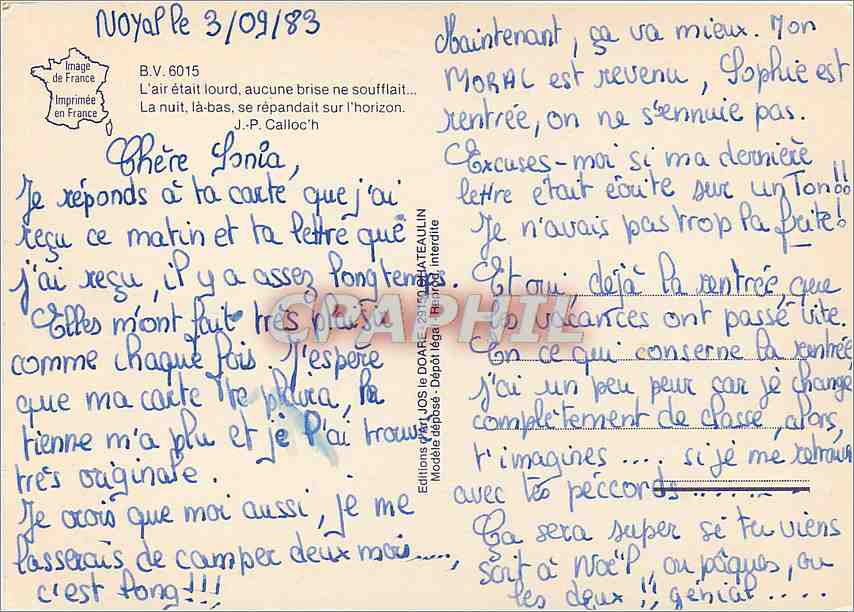 Noyal le 3/09/83
Image
de France
Imprimée
en France
B.V. 6015
L'air était lourd, aucune brise ne soufflait...
La nuit, là-bas, se répandait sur l'horizon.
J.-P. Calloc'h
Chère Sonia,
Je réponds à ta carte que j'ai
reçu ce matin et ta lettre que
j'ai reçu, il y a assez longtemps.
Elles m'ont fait très plaisir
comme chaque fois. J'espère
que ma carte te plaira, la
tienne m'a plu et je l'ai trouvé
très originale.
Je crois que moi aussi, je me
lasserais de camper deux mois....,
c'est long!!!
Editions d'Art JOS le DOARE - 29150 CHATEAULIN
Modèle déposé - Dépôt légal - Reprod. interdite
CPAPHIL
Maintenant, ça va mieux. Mon
MORAL est revenu, Sophie est
rentrée, on ne s'ennuie pas.
Excuses-moi si ma dernière
lettre était écrite sur un Ton!!
Je n'avais pas trop la frite!
Et oui, déjà la rentrée, que
les vacances ont passé vite.
En ce qui conserne la rentrée,
j'ai un peu peur car je change
complètement de classe, alors,
t'imagines .... si je me retrouve
avec tes péccords ......
Ça sera super si tu viens
soit à Noël, ou pâques, ou
les deux!! génial ....